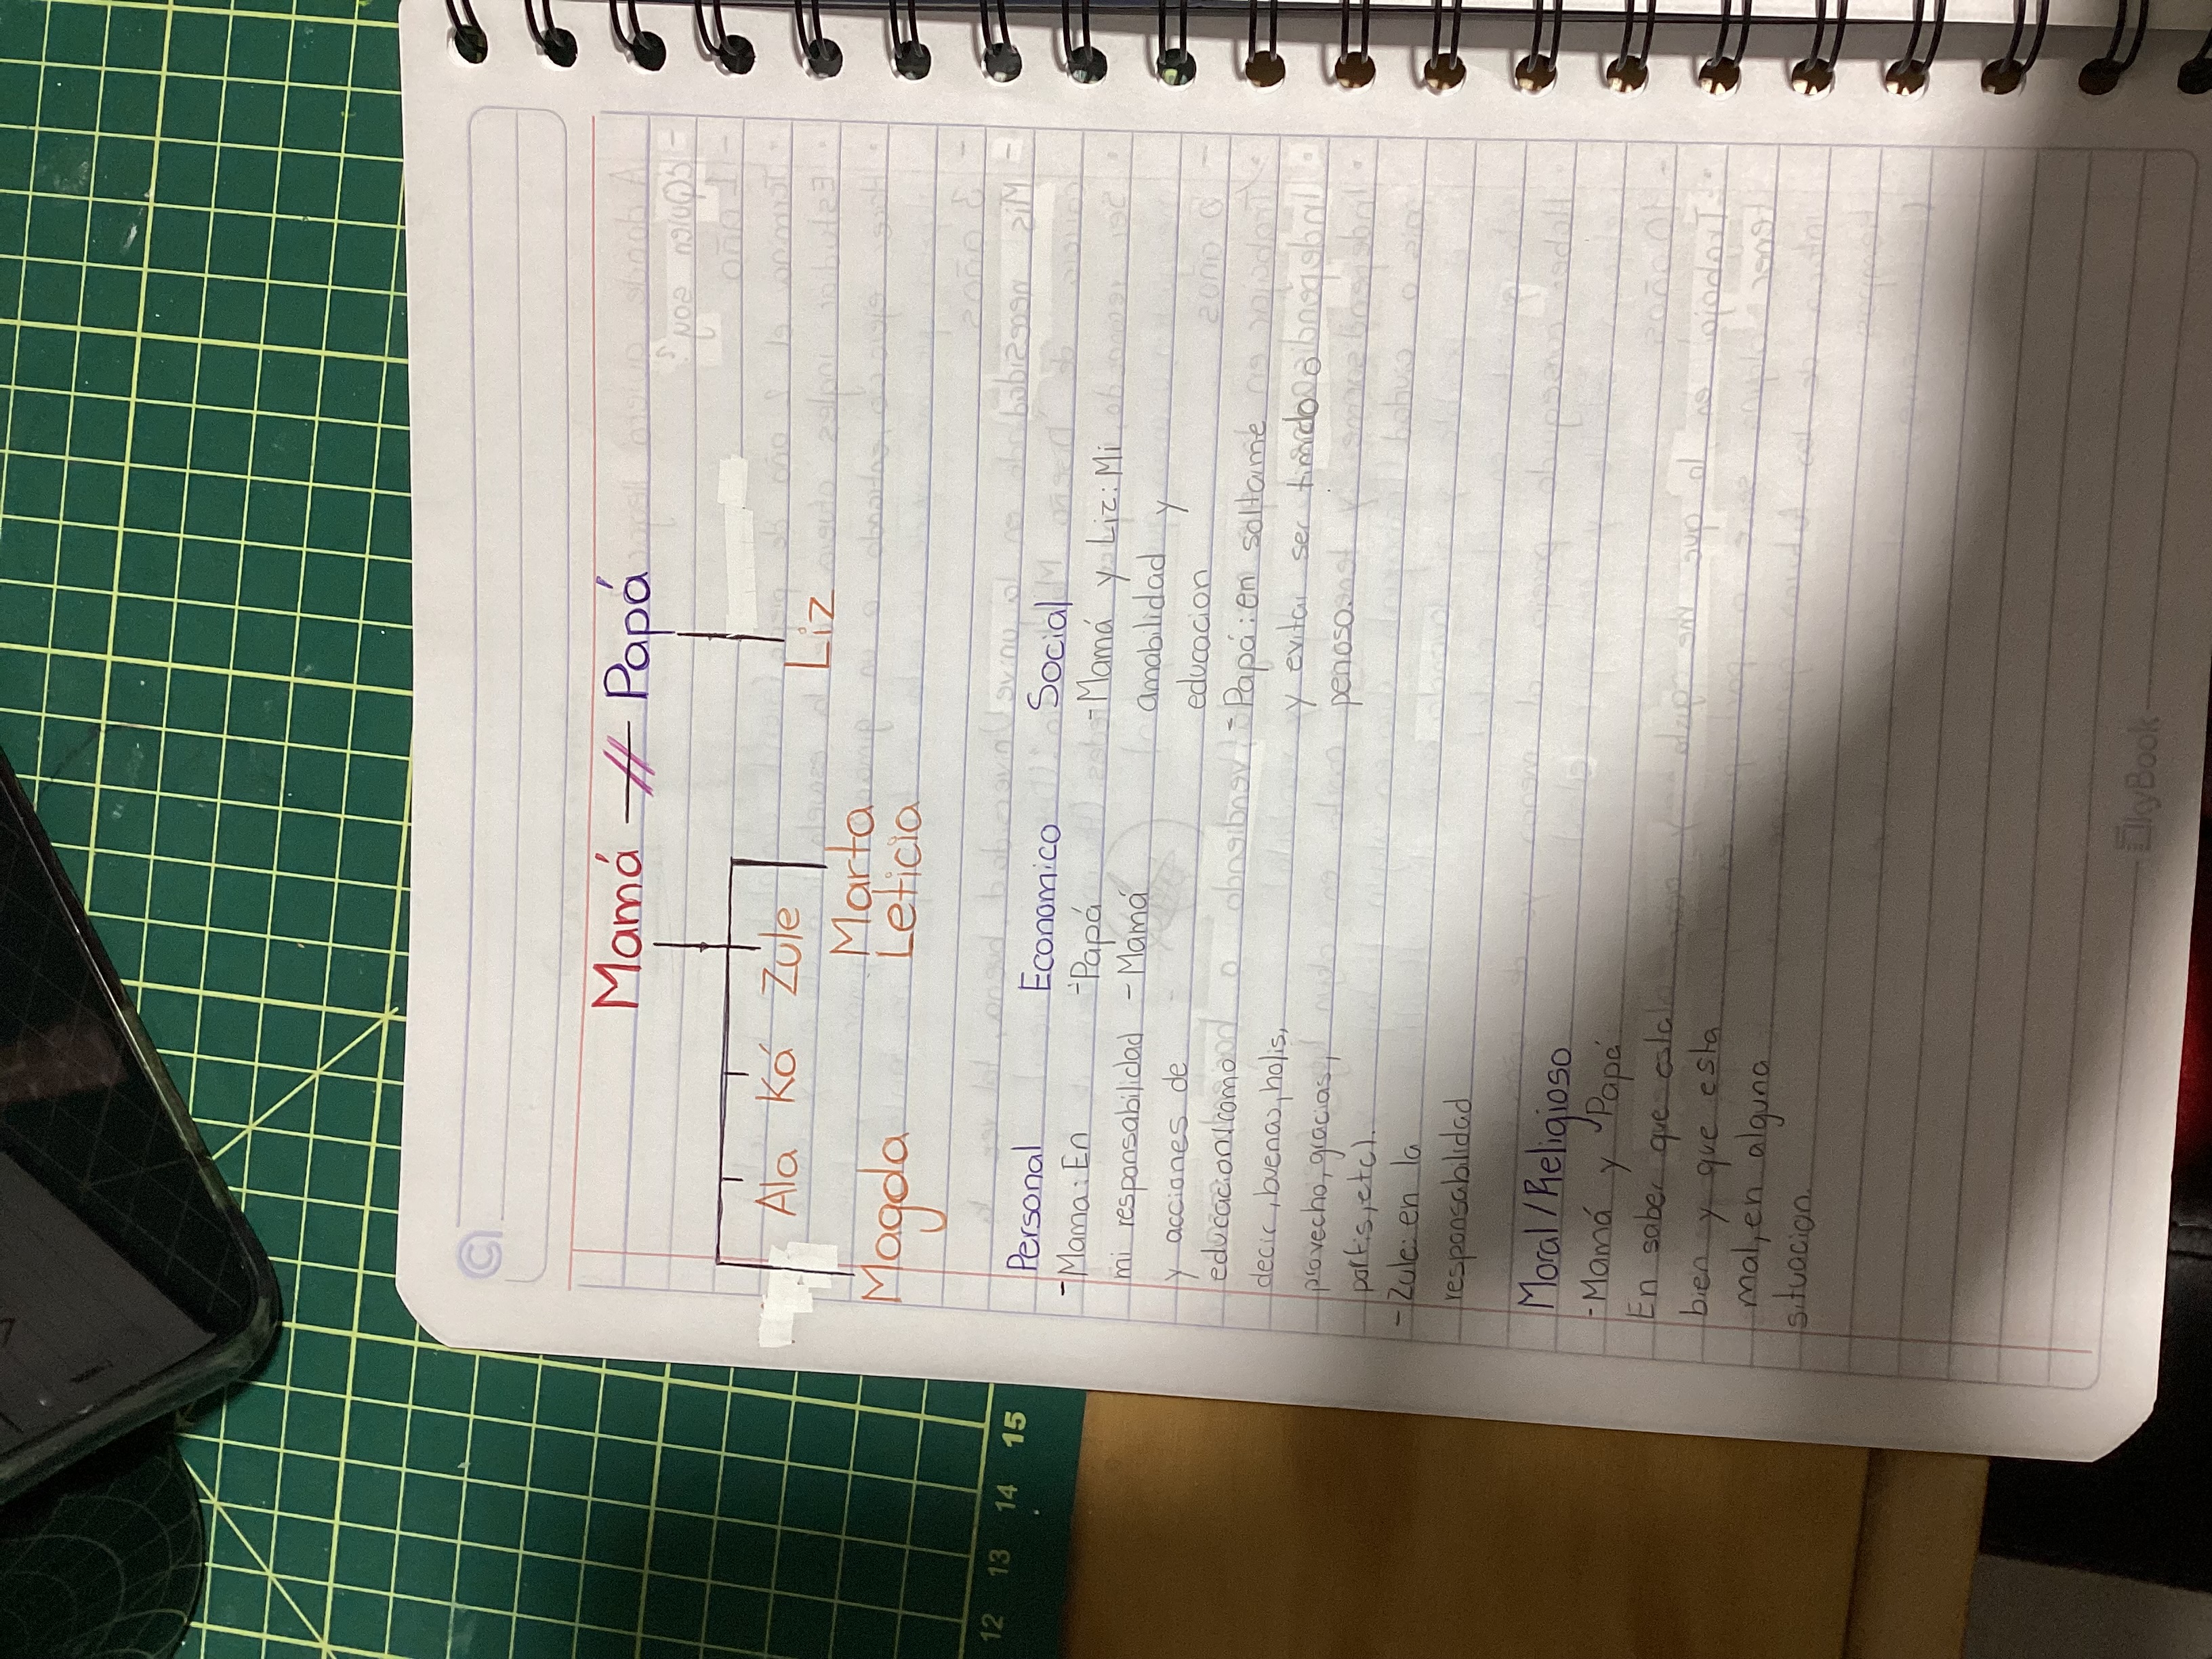 Mamá // Papá
Ala Ká Zule
Liz
Magda
Marta
Leticia
Personal
- Mama: En
mi responsabilidad
y acciones de
educacion(como
decir, buenas, holis,
provecho, gracias,
portis, etc).
- Zule: en la
responsabilidad
Economico
- Papá
- Mamá
Social
- Mamá y Liz: Mi
amabilidad y
educacion
- Papá: en soltarme
y evitar ser timido o
penoso.
Moral/Religioso
- Mamá y Papá
En saber que esta
bien y que esta
mal, en alguna
situacion.
SkyBook
12 13 14 15